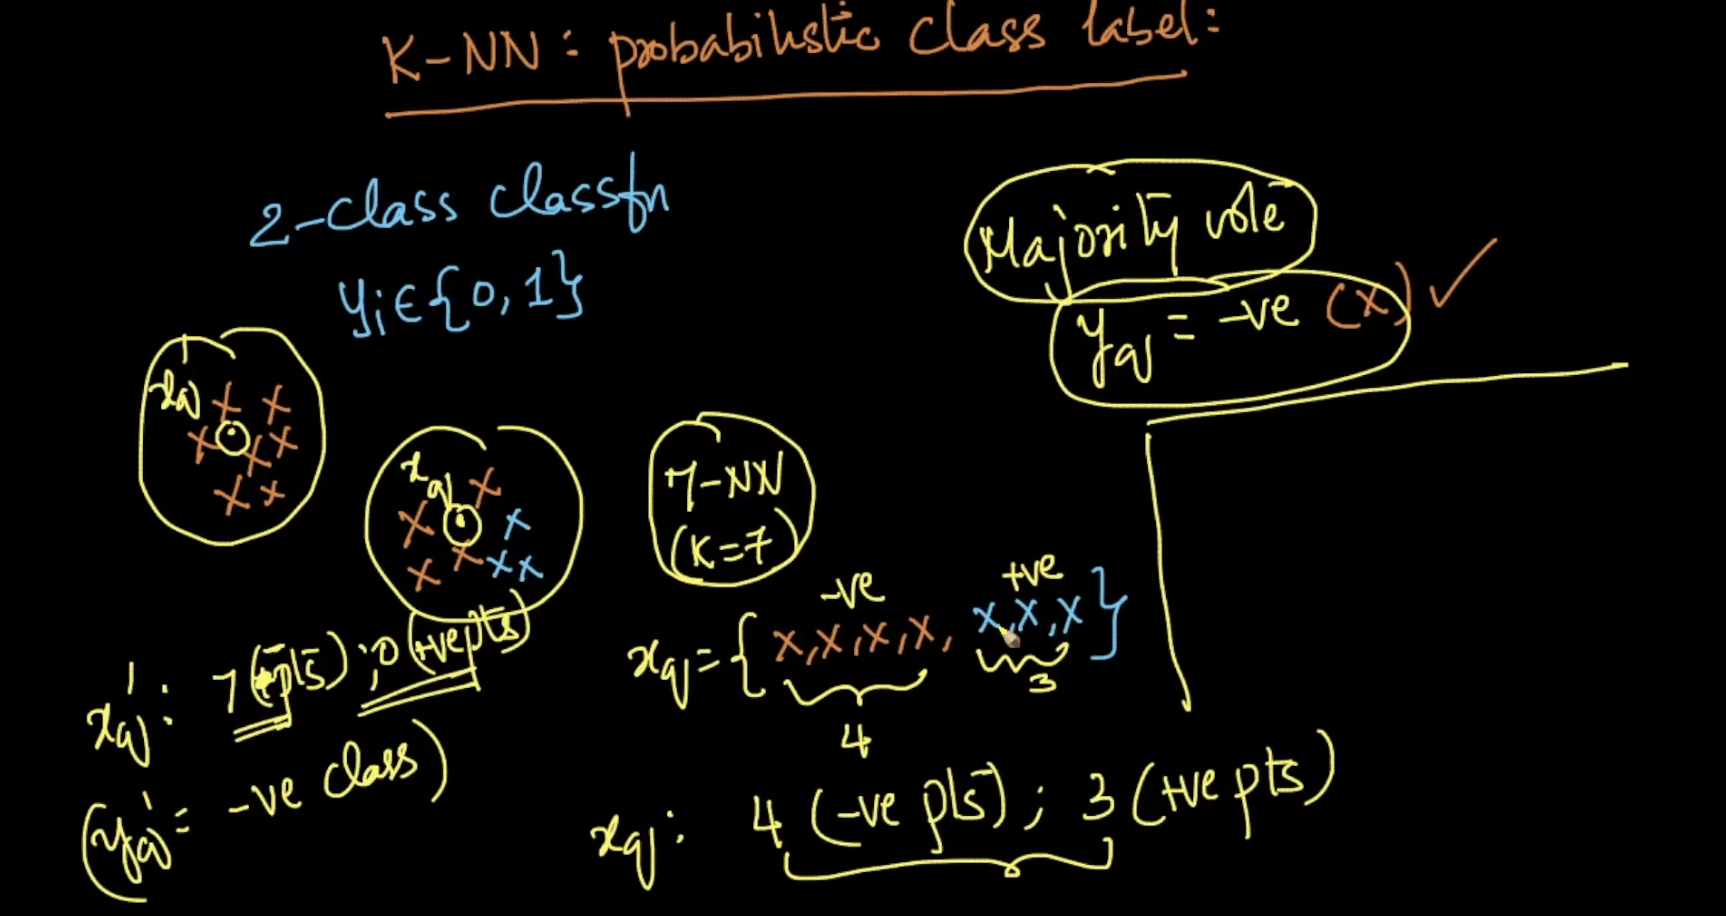 K-NN: probabilistic class label:
2-class classfn
yi∈{0,1}
Majority vote
yq = -ve (x) ✓
xq'
x x
x x x
x x
xq
x
x x
x x x x
7-NN
(K=7)
-ve +ve
xq={x,x,x,x, x,x,x}
4 3
xq': 7(-pts); 0(+ve pts)
(yq'= -ve class)
xq: 4 (-ve pts); 3 (+ve pts)